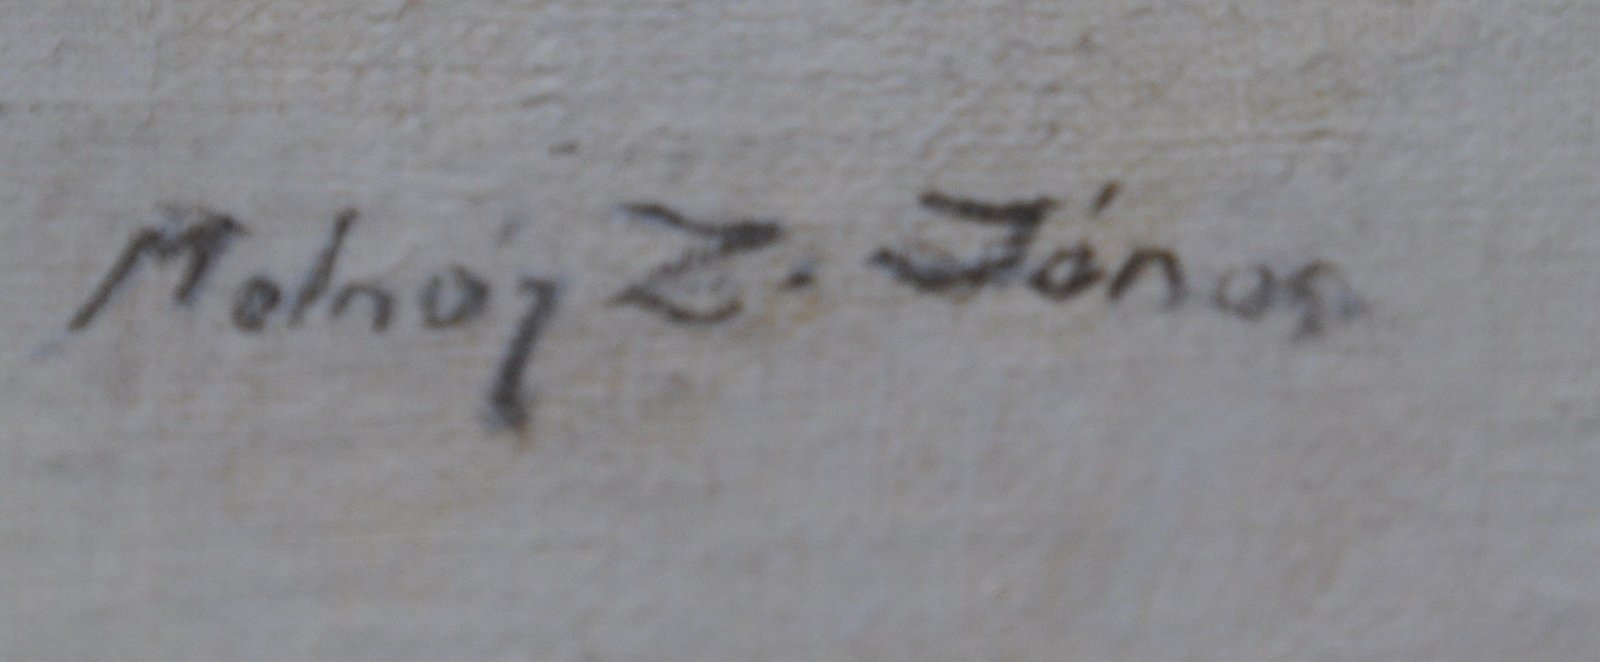 Molnár Z. János